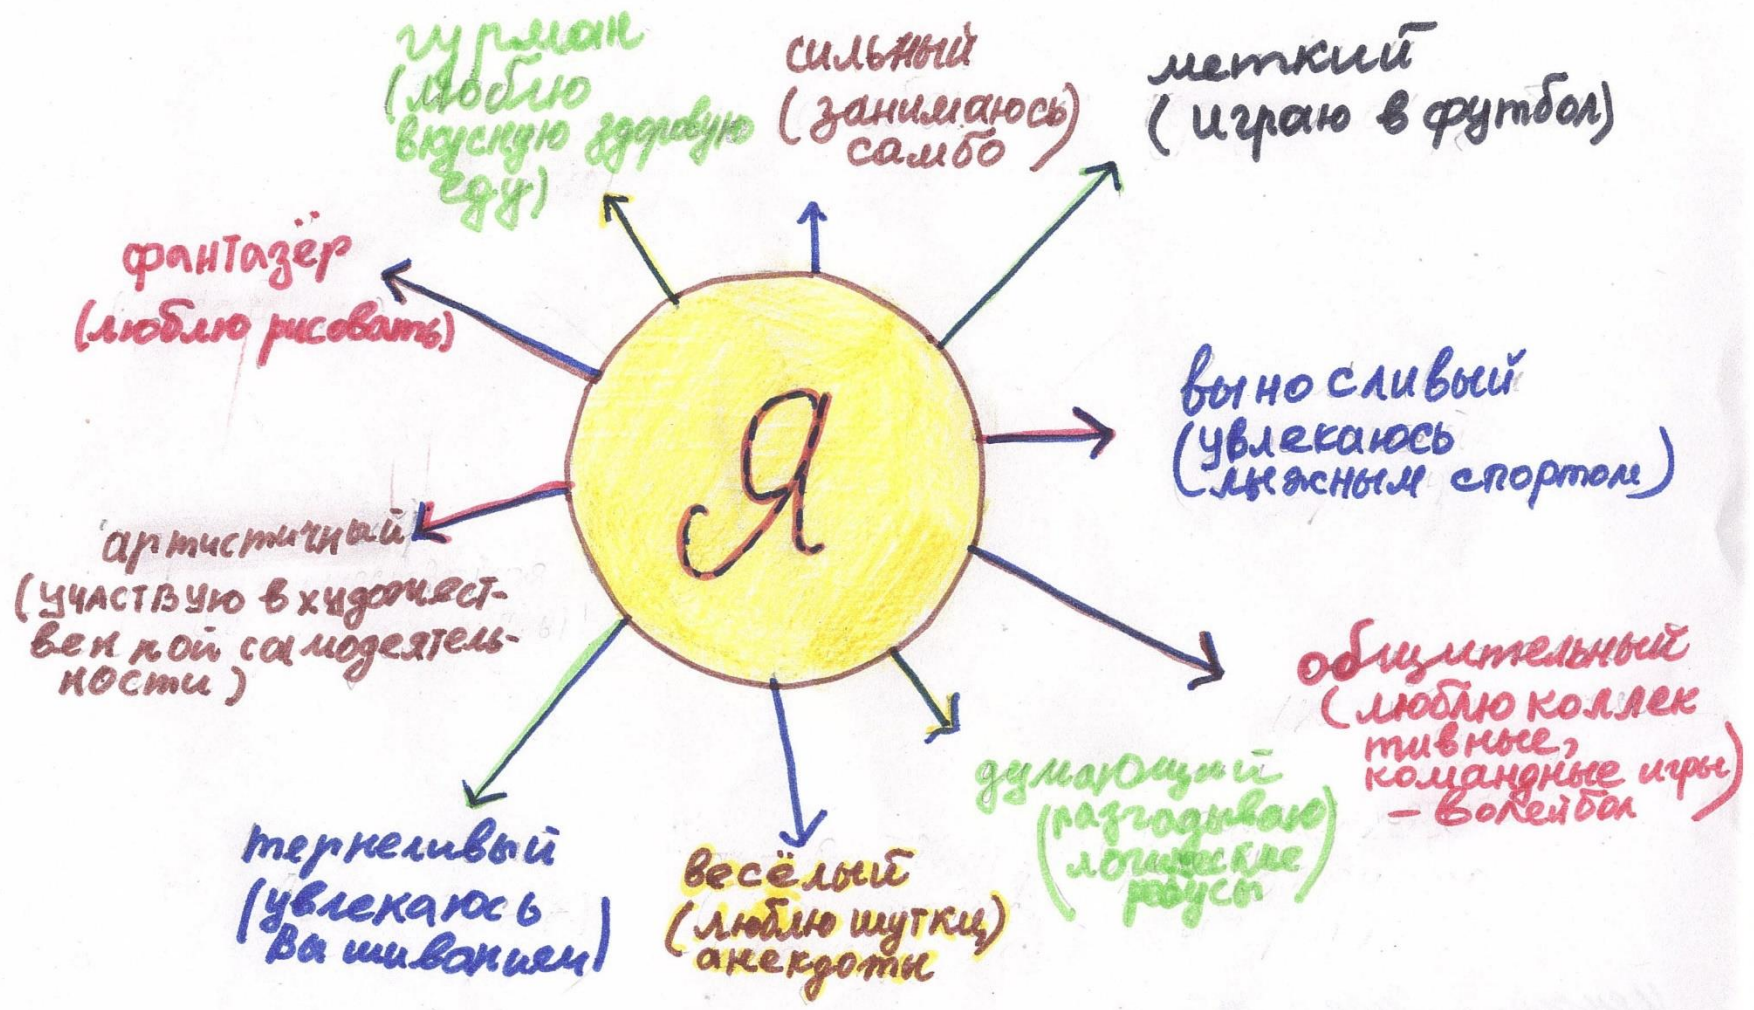 гурман
(люблю
вкусную здоровую
еду)
сильный
(занимаюсь)
самбо
меткий
(играю в футбол)
фантазёр
(люблю рисовать)
Я
выносливый
(увлекаюсь
лыжным спортом)
артистичный
(участвую в художест-
венной самодеятель-
ности)
общительный
(люблю коллек
тивные,
командные игры)
- волейбол
думающий
(разгадываю)
логические
ребусы
терпеливый
(увлекаюсь
вышиванием)
весёлый
(люблю шутки)
анекдоты